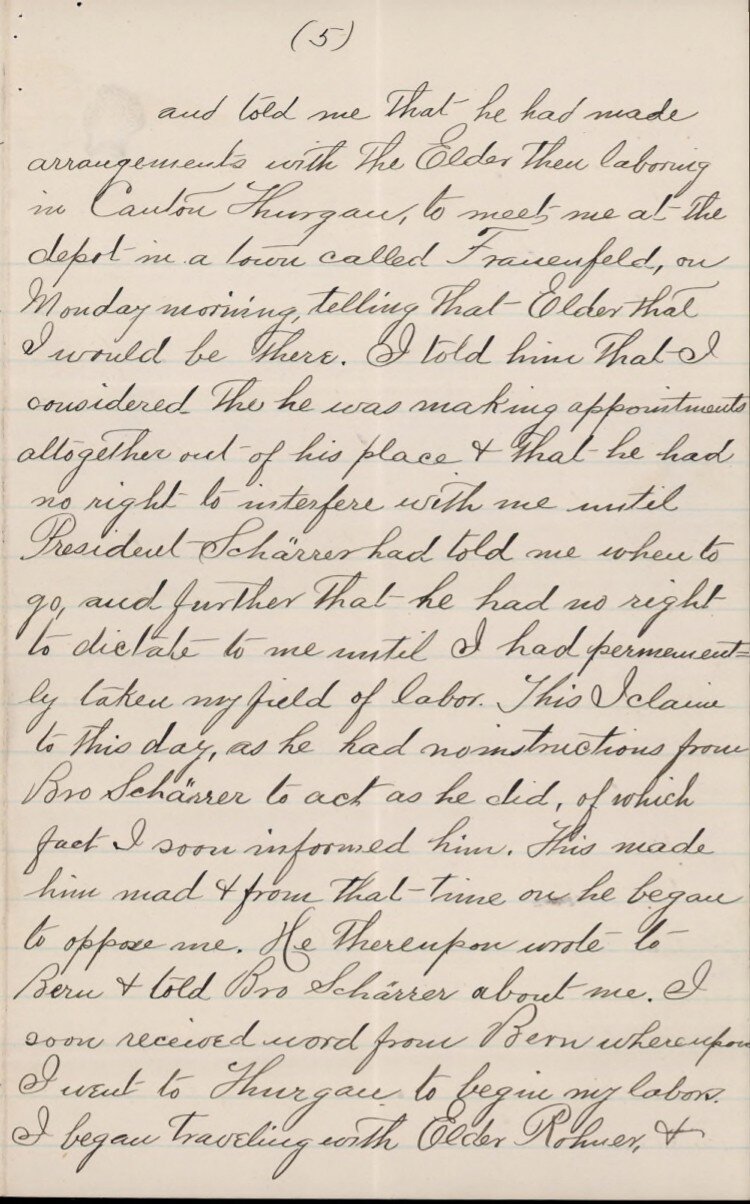 (5)
and told me that he had made
arrangements with the Elder then laboring
in Canton Thurgau, to meet me at the
depot in a town called Frauenfeld, on
Monday morning, telling that Elder that
I would be there. I told him that I
considered the he was making appointments
altogether out of his place & that he had
no right to interfere with me until
President Schärrer had told me when to
go, and further that he had no right
to dictate to me until I had permement=
ly taken my field of labor. This I claim
to this day, as he had no instructions from
Bro Schärrer to act as he did, of which
fact I soon informed him. This made
him mad & from that time on he began
to oppose me. He thereupon wrote to
Bern & told Bro Schärrer about me. I
soon received word from Bern whereupon
I went to Thurgau to begin my labors.
I began traveling with Elder Rohner, &